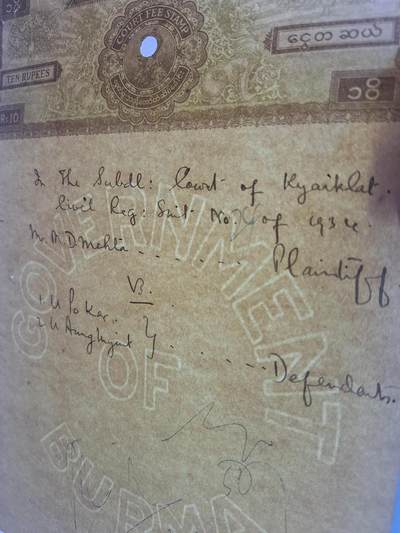 COURT FEE STAMP
ငွေတဆယ်
TEN RUPEES
၁၀
RS:10
In the Subdl: Court of Kyaiklat.
Civil Reg: Suit No. of 1934.
Mehta - - - - - - Plaintiff
Vs.
1. U Po Kar
2. U Aung Myint } - - - - - Defendants.
GOVERNMENT
OF
BURMA